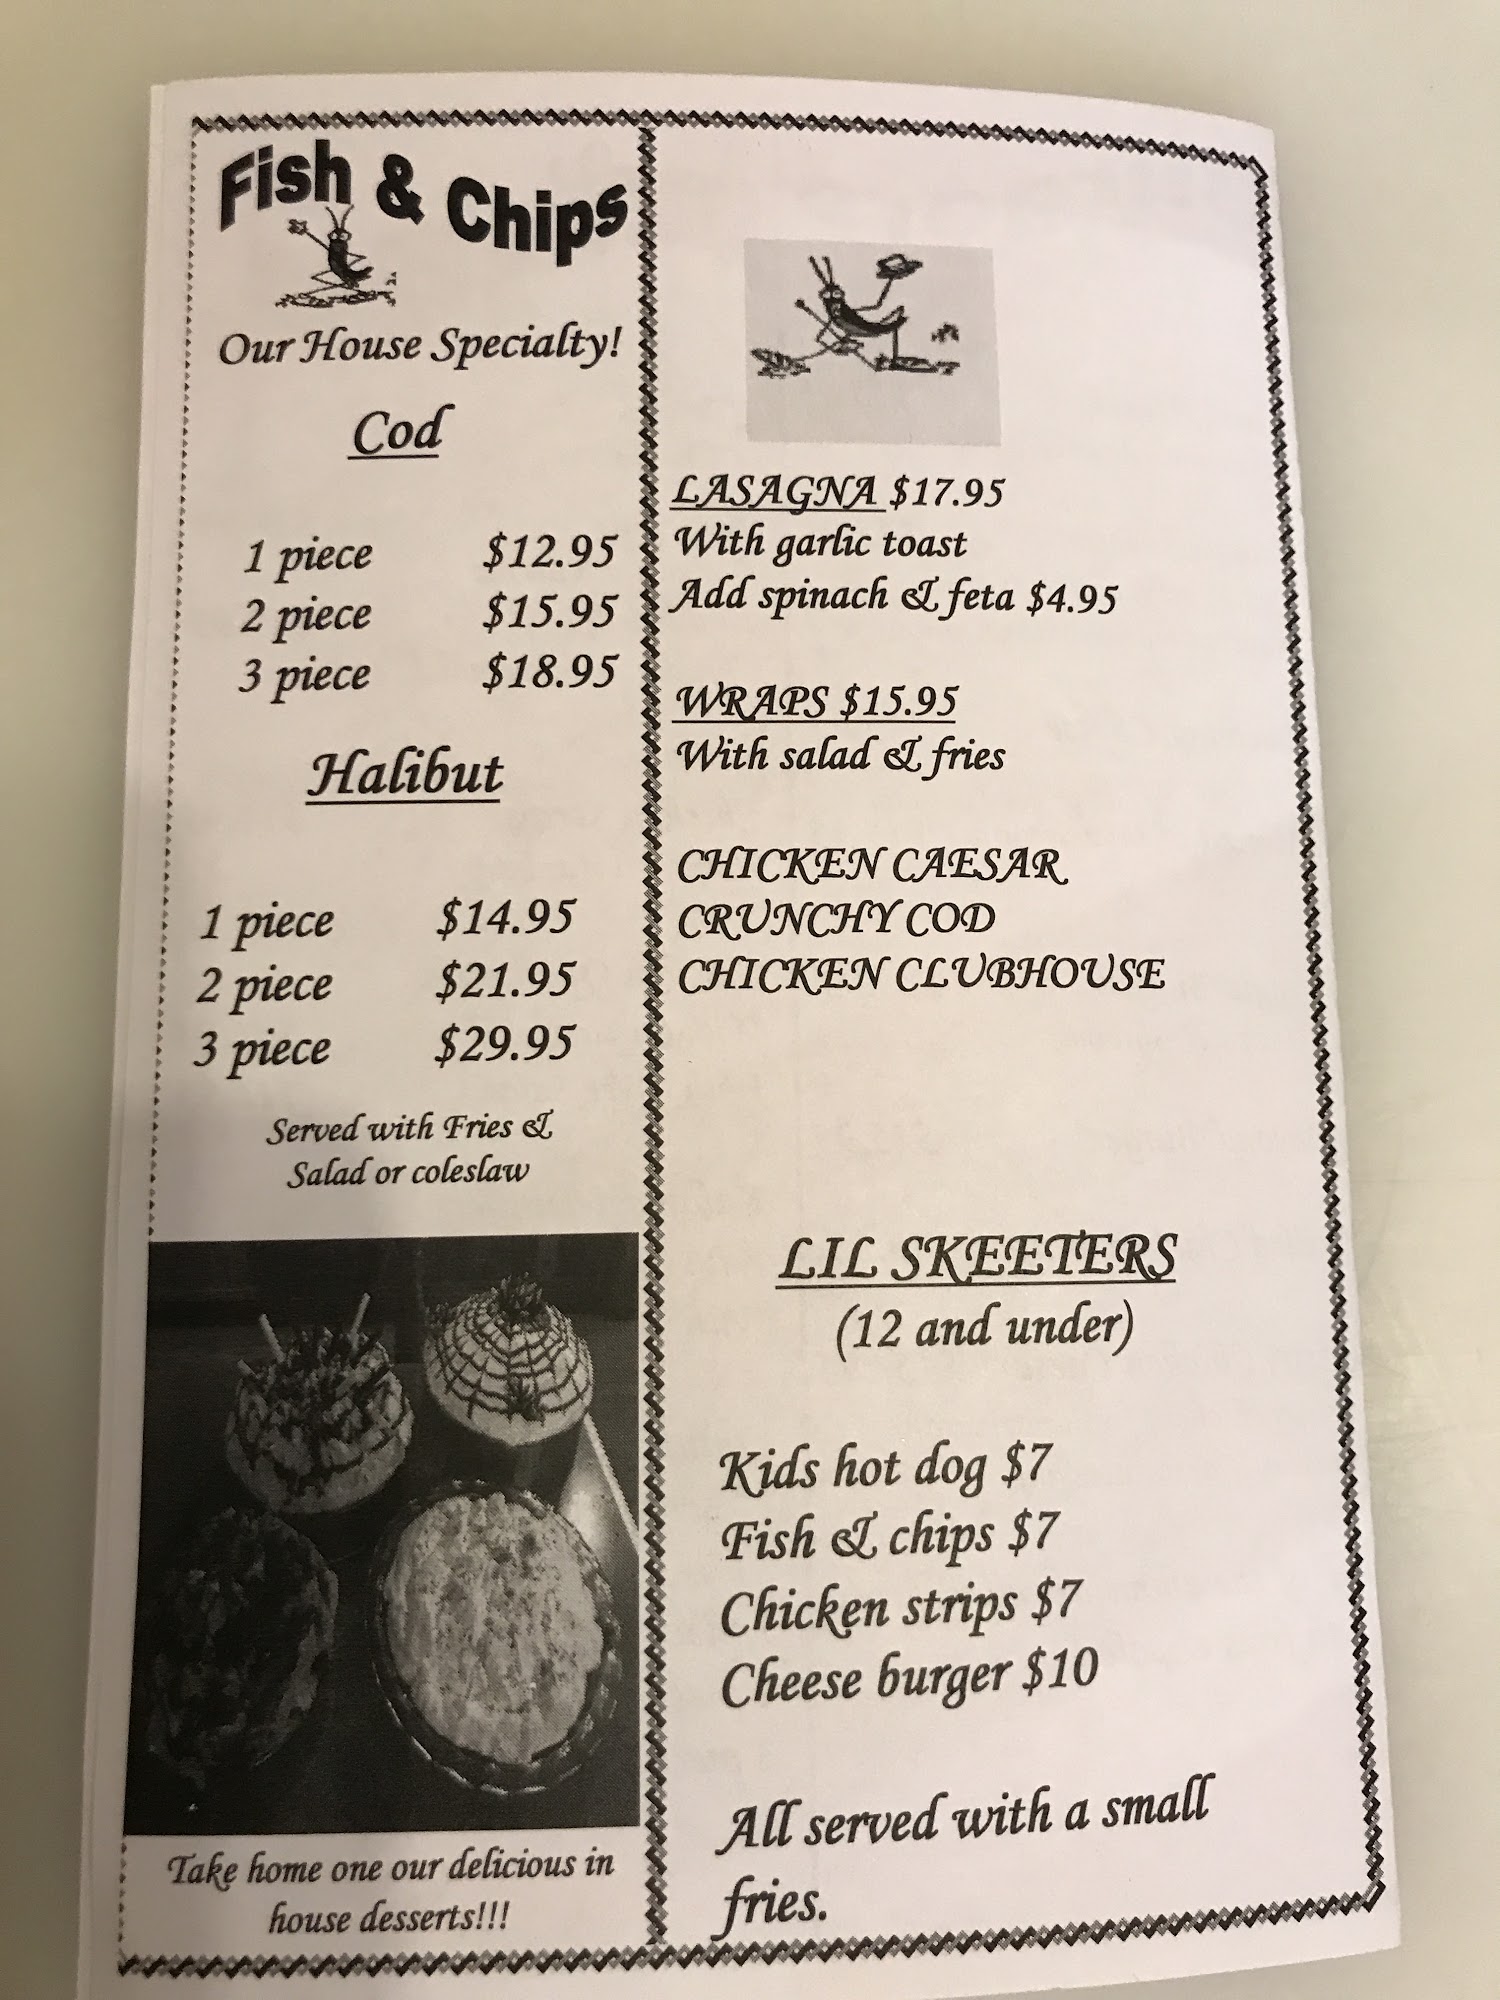 Fish & Chips
Our House Specialty!
Cod
1 piece $12.95
2 piece $15.95
3 piece $18.95
Halibut
1 piece $14.95
2 piece $21.95
3 piece $29.95
Served with Fries &
Salad or coleslaw
Take home one our delicious in
house desserts!!!
LASAGNA $17.95
With garlic toast
Add spinach & feta $4.95
WRAPS $15.95
With salad & fries
CHICKEN CAESAR
CRUNCHY COD
CHICKEN CLUBHOUSE
LIL SKEETERS
(12 and under)
Kids hot dog $7
Fish & chips $7
Chicken strips $7
Cheese burger $10
All served with a small
fries.